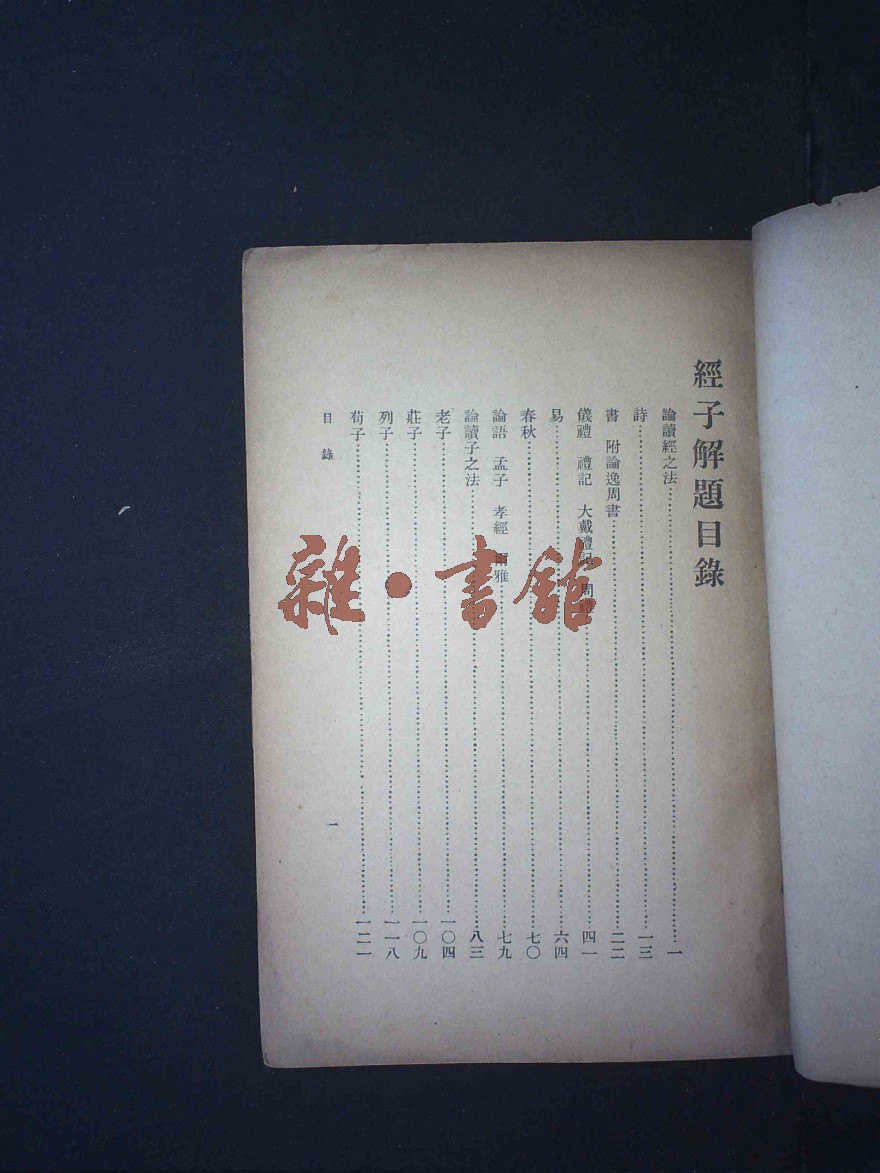 經子解題目錄
論讀經之法……一
詩……一三
書　附論逸周書……二二
儀禮　禮記　大戴禮記　周禮……四一
易……六四
春秋……七〇
論語　孟子　孝經　爾雅……七九
論讀子之法……八三
老子……一〇四
莊子……一〇九
列子……一一八
荀子……一二一
目錄
一
雜·書館